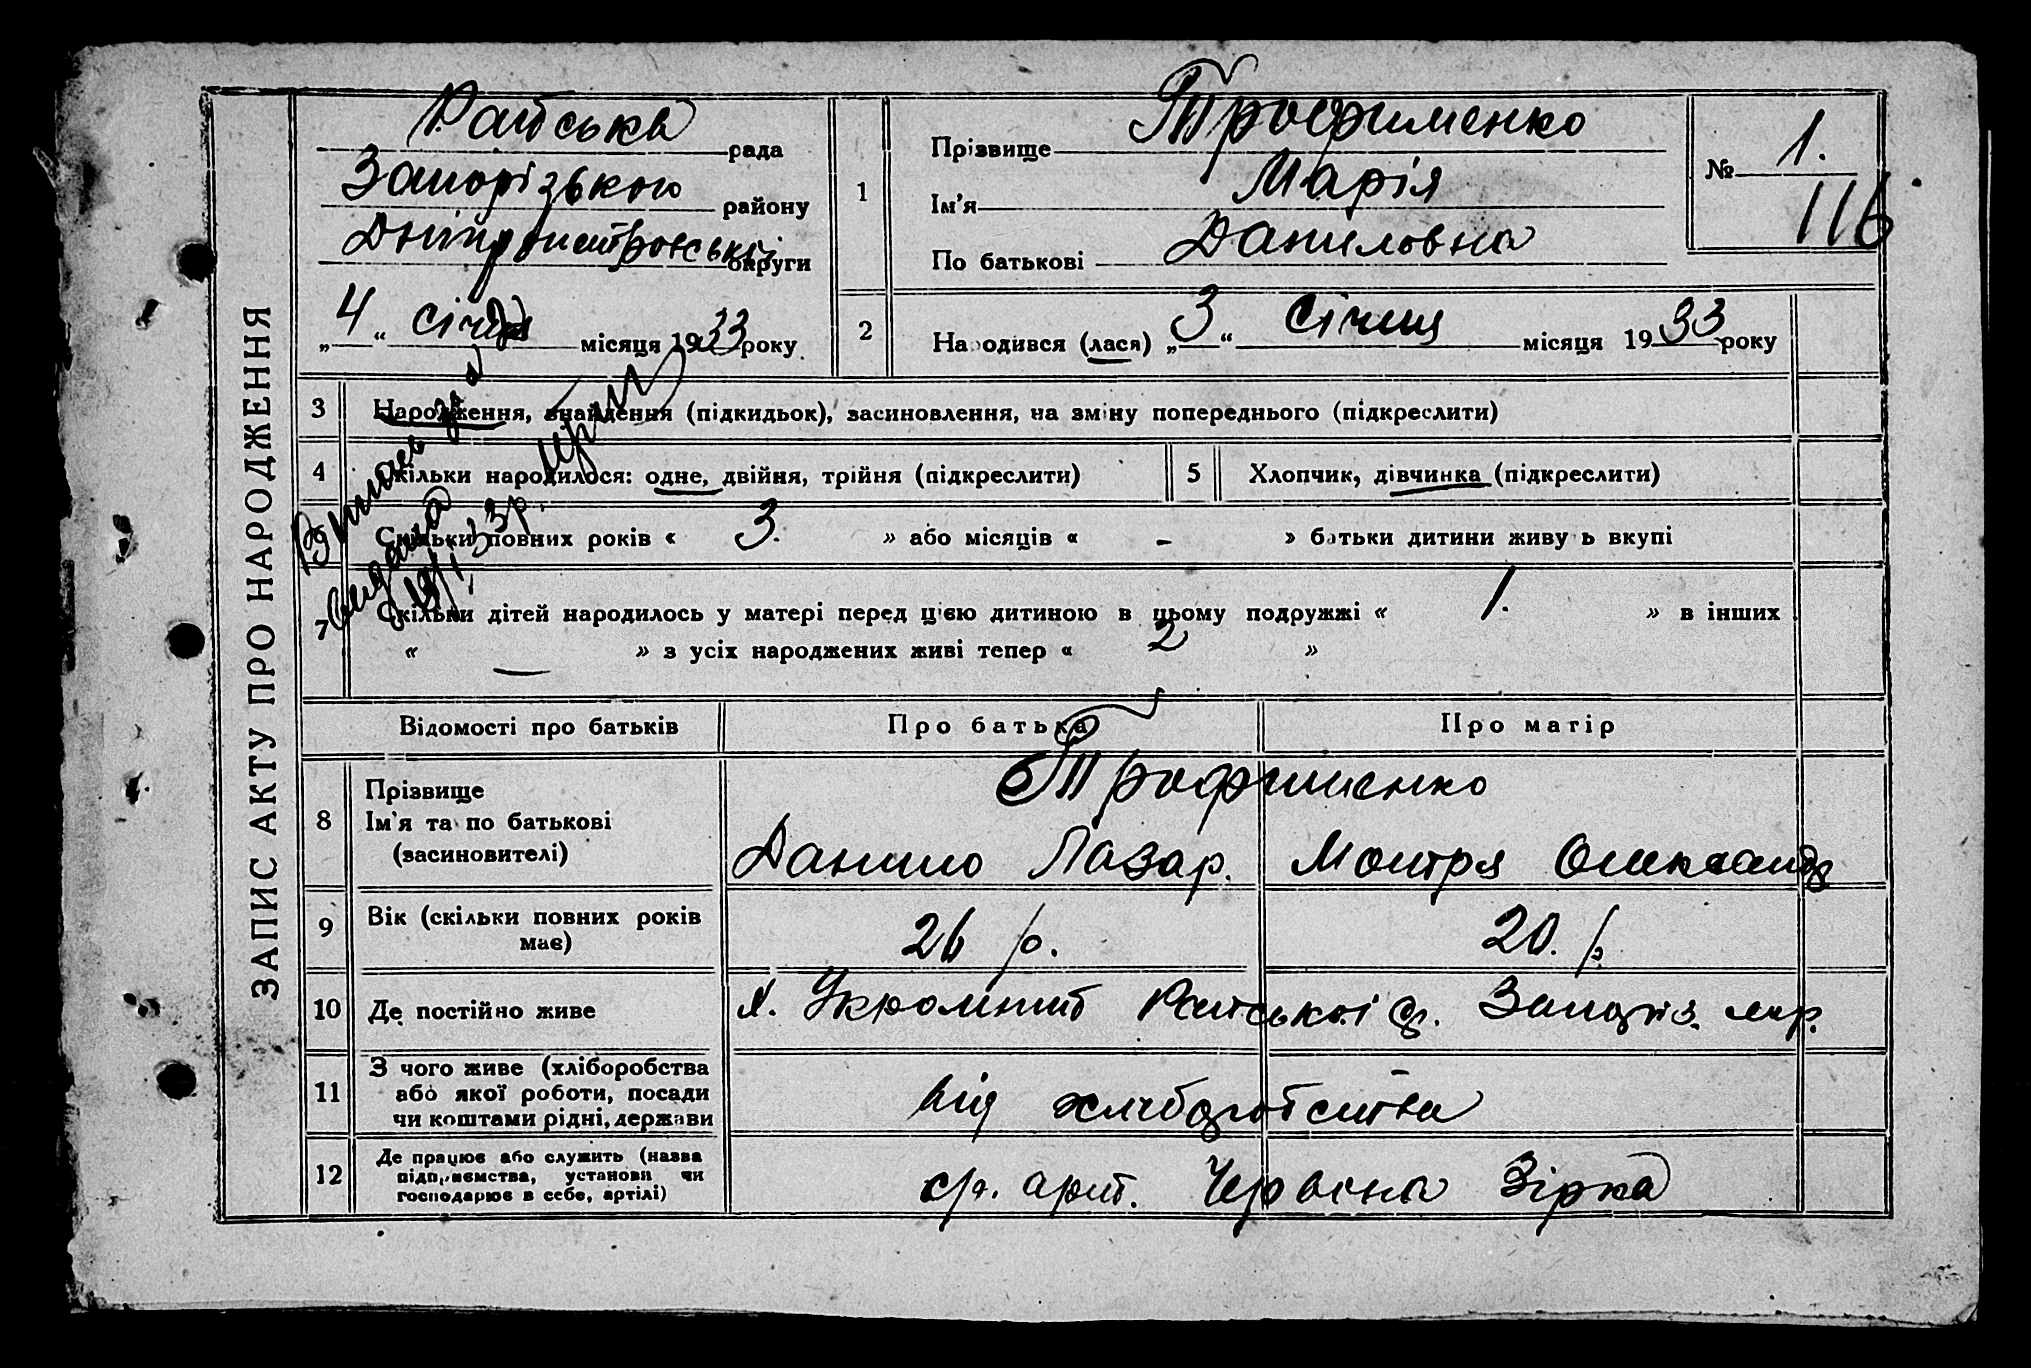 ЗАПИС АКТУ ПРО НАРОДЖЕННЯ
рада
Запорізького району
Дніпропетровської округи
„ 4 “ січня місяця 1933 року
1
Прізвище Трофименко
Ім'я Марія
По батькові Даниловна
№ 1.
116
2
Народився (лася) „ 3 “ Січня місяця 1933 року
3 Народження, внайдення (підкидьок), засиновлення, на зміну попереднього (підкреслити)
4 Скільки народилося: одне, двійня, трійня (підкреслити)
5 Хлопчик, дівчинка (підкреслити)
Скільки повних років « 3. » або місяців « - » батьки дитини живуть вкупі
7 Скільки дітей народилось у матері перед цією дитиною в цьому подружжі « 1. » в інших
« — » з усіх народжених живі тепер « 2 »
Відомості про батьків Про батька Про матір
8 Прізвище
Ім'я та по батькові
(засиновителі)
Трофименко
Данило Лазар. Мотря Олександ
9 Вік (скільки повних років має)
26 р. 20. р.
10 Де постійно живе
х. Запоріз.
11 З чого живе (хліборобства
або якої роботи, посади
чи коштами рідні, держави
від хліборобства
12 Де працює або служить (назва
підприємства, установи чи
господарює в себе, артілі)
с/г. арт. Червона Зірка